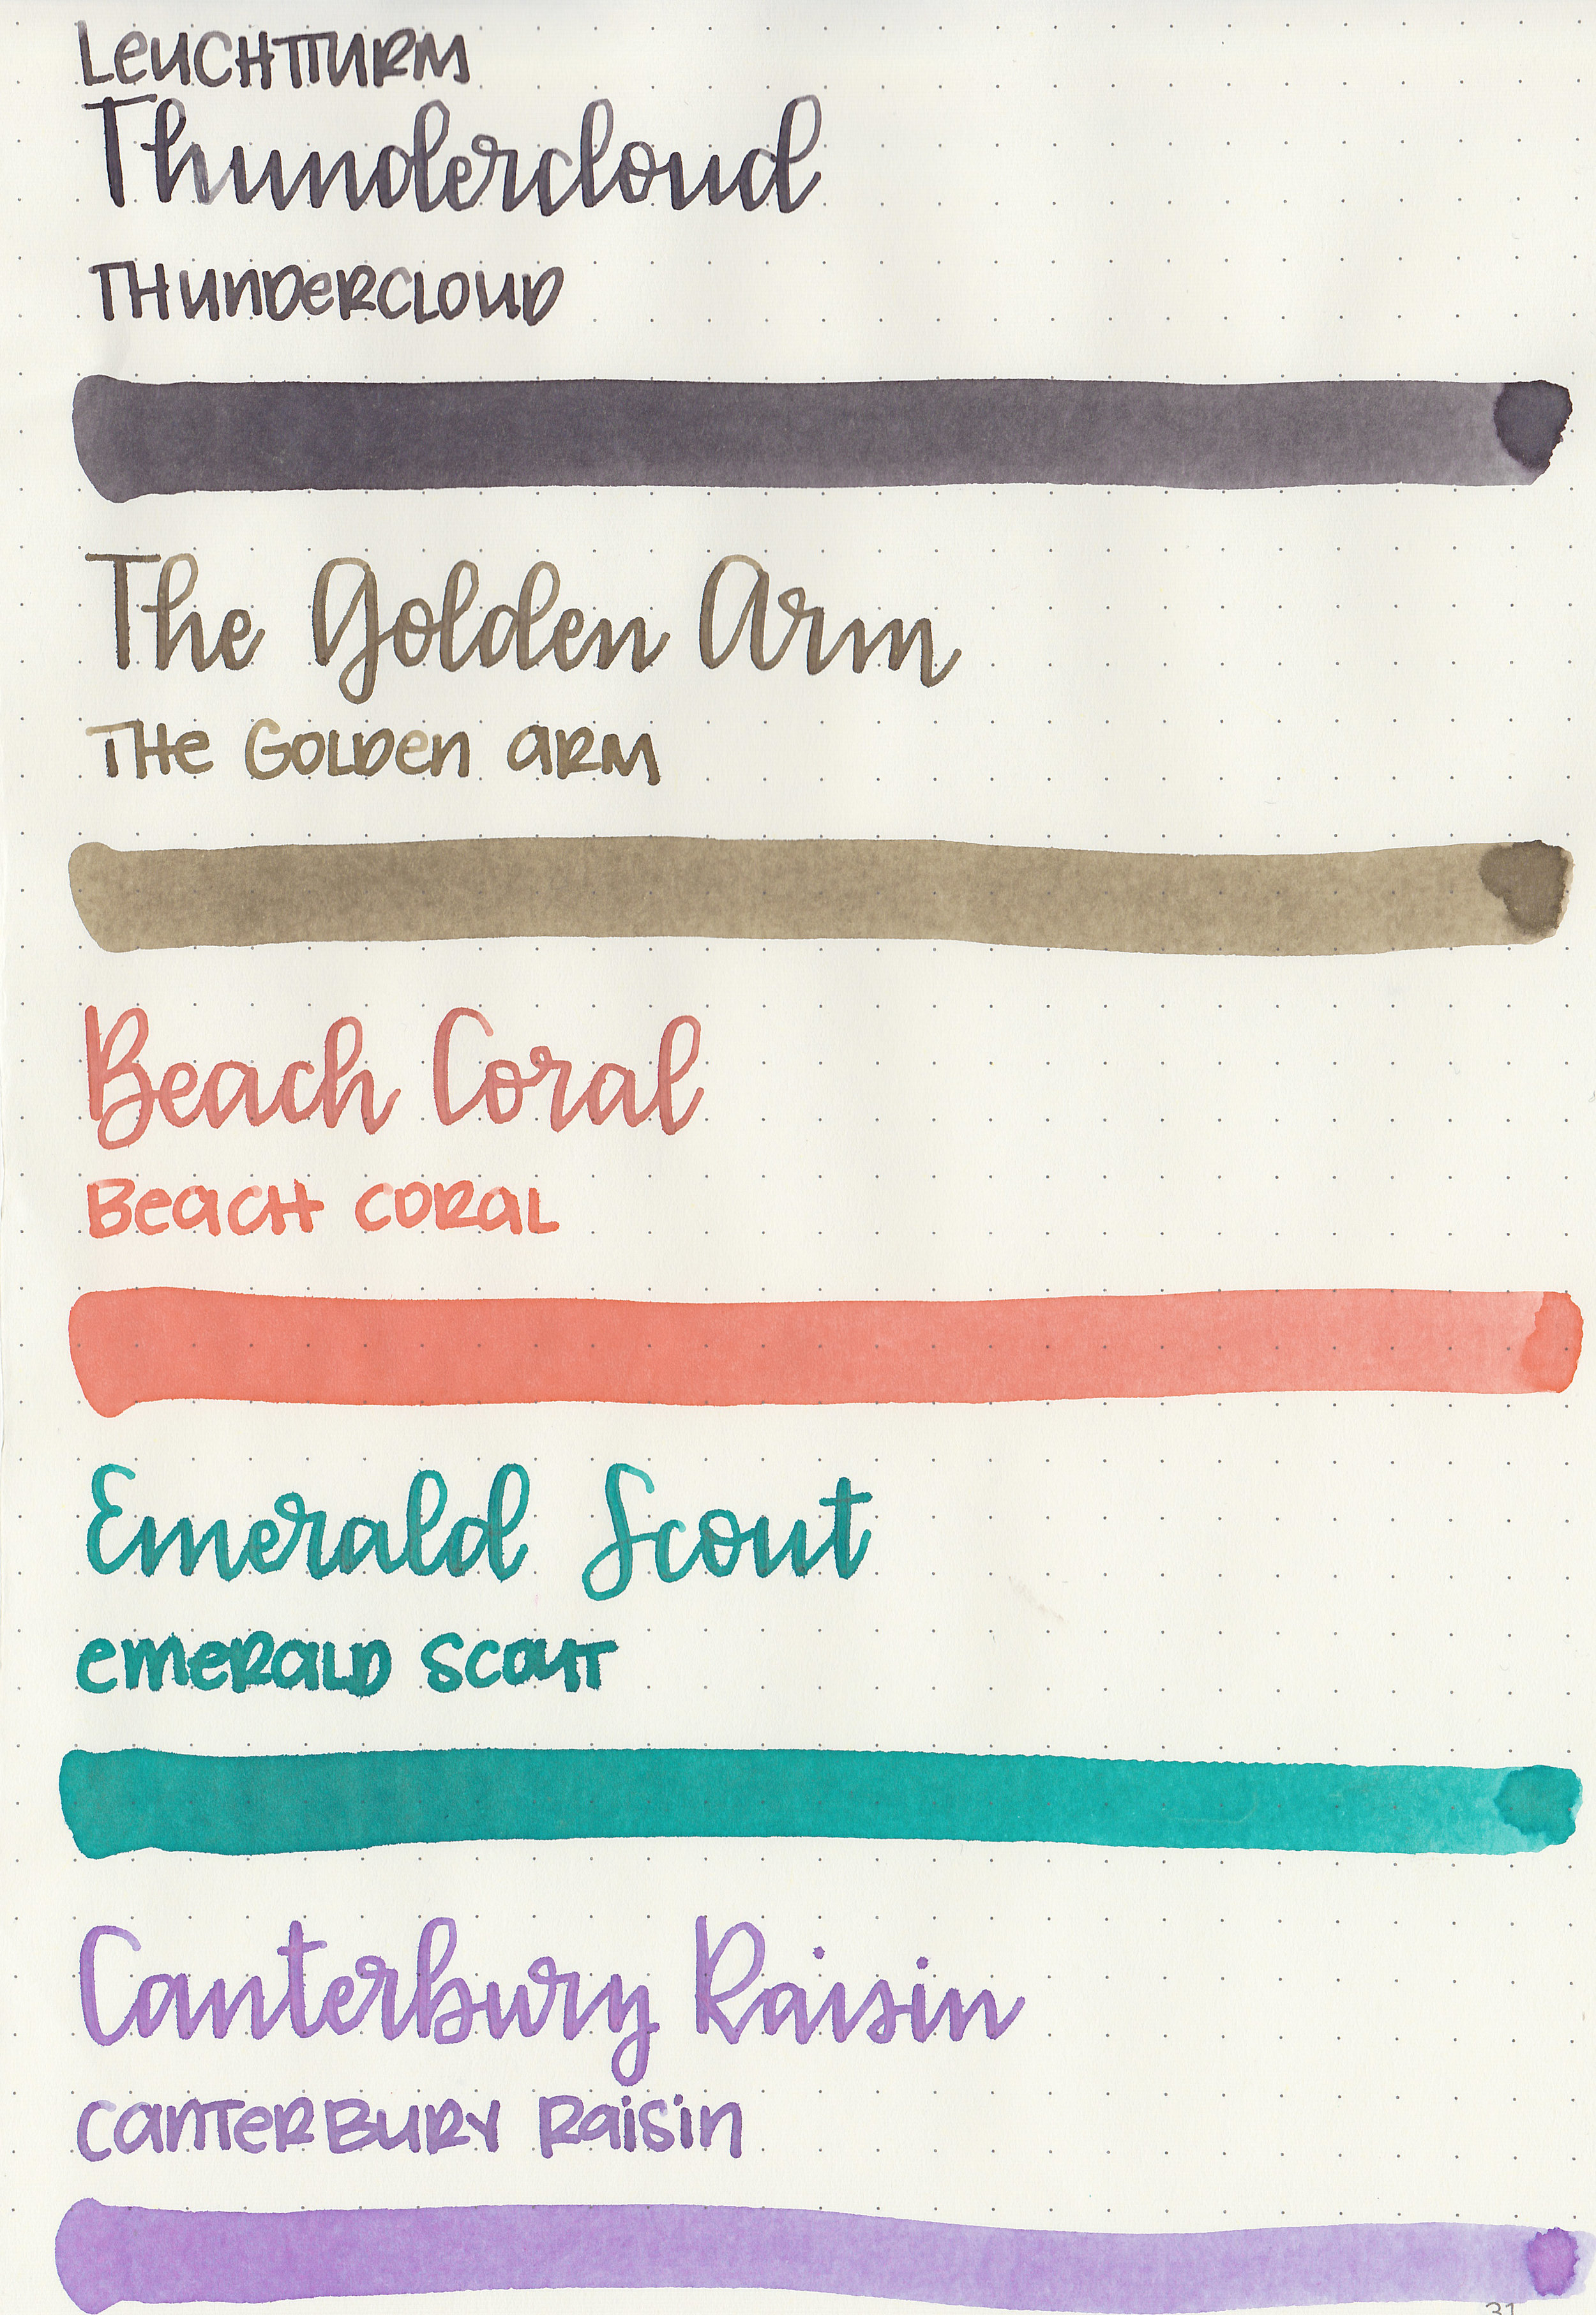 LEUCHTTURM
Thundercloud
THUNDERCLOUD
The Golden Arm
THE GOLDEN ARM
Beach Coral
BEACH CORAL
Emerald Scout
EMERALD SCOUT
Canterbury Raisin
CANTERBURY RAISIN
31